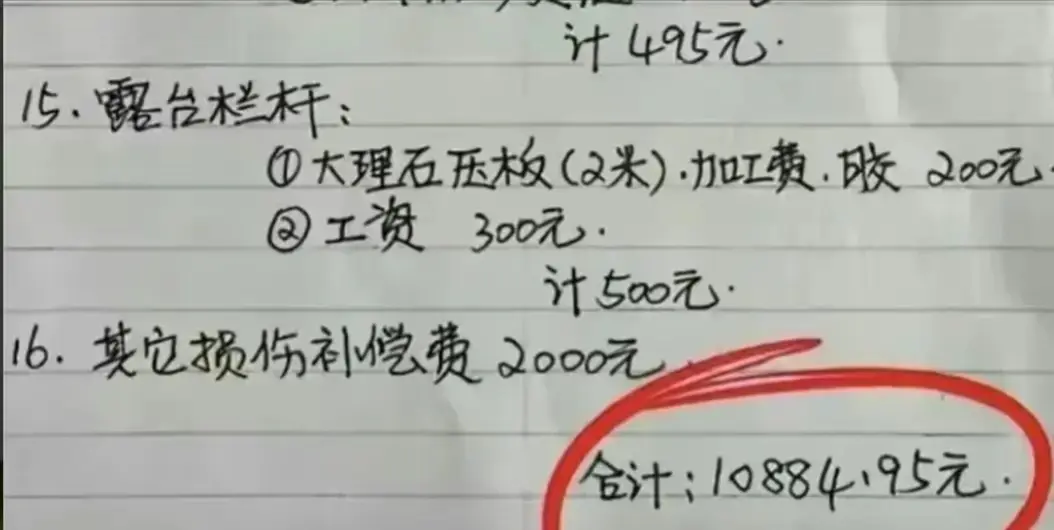 计495元.
15.露台栏杆:
①大理石压板(2米).加工费.胶 200元.
②工资 300元.
计500元.
16.其它损伤补偿费2000元.
合计:10884.95元.